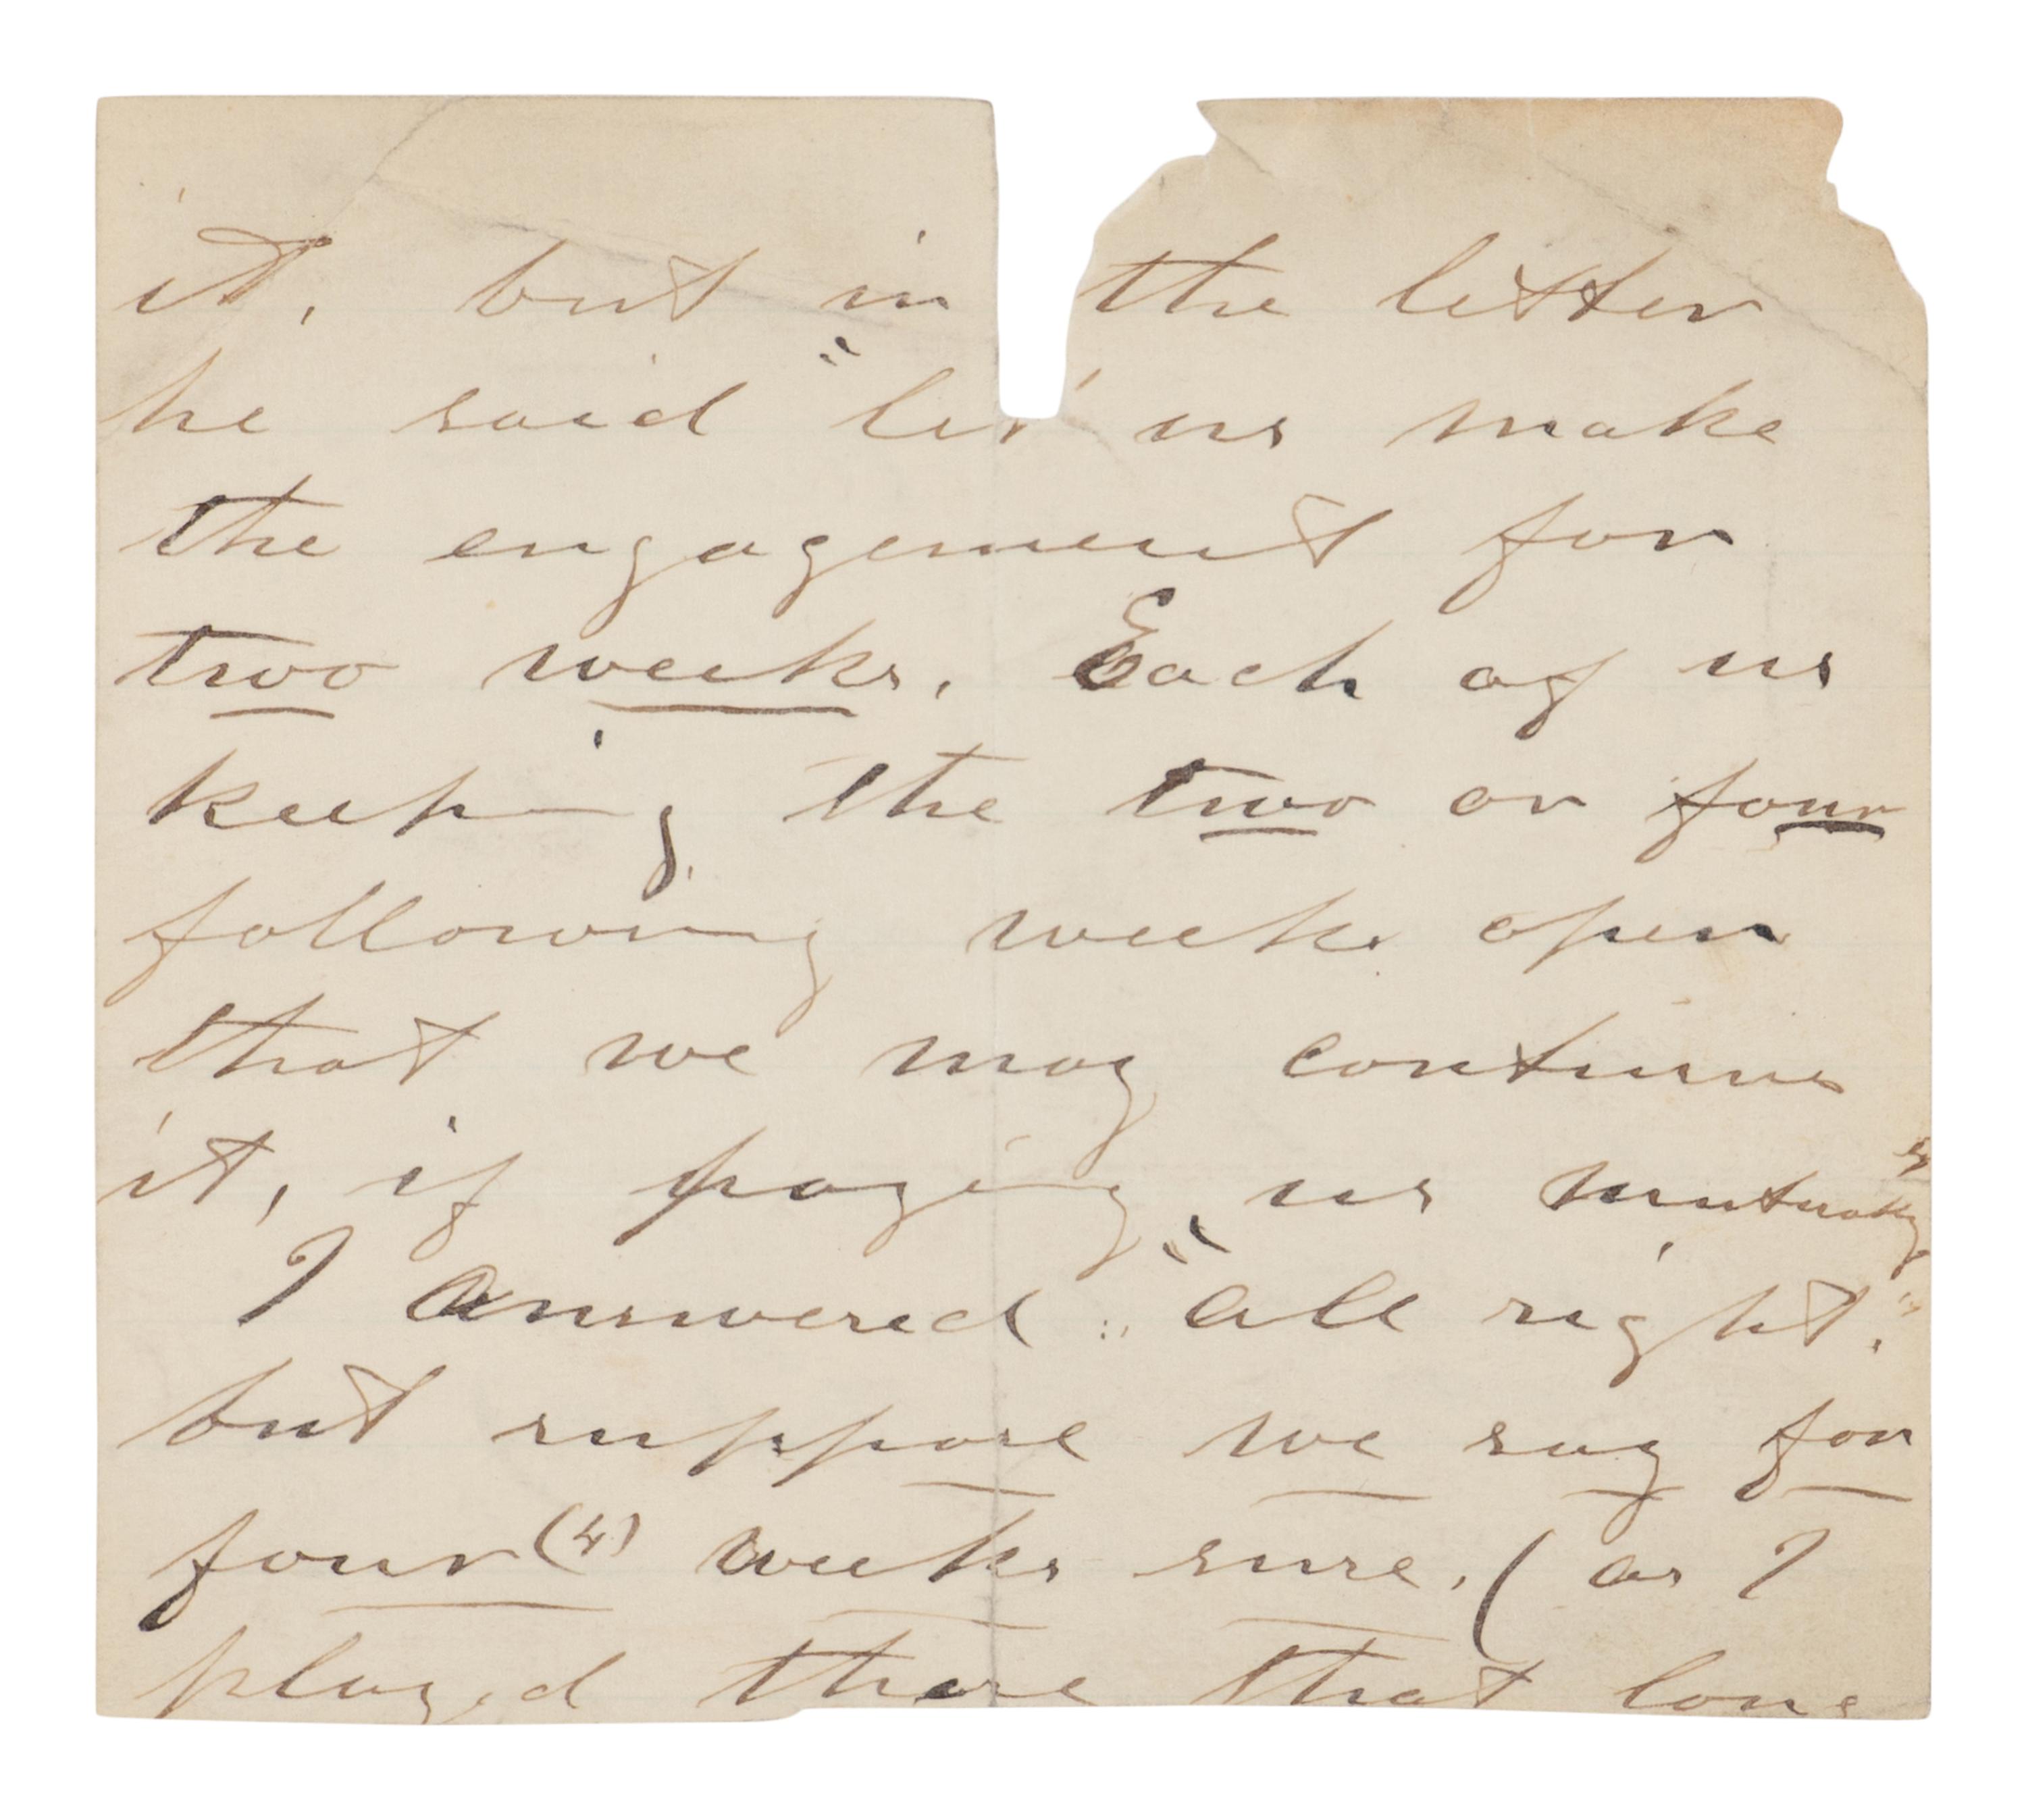 it, but in the letter
he said "let us make
the engagement for
two weeks. Each of us
keeping the two or four
following weeks open
that we may continue
it, if paying us mutually"
I answered: "all right.
but suppose we say for
four (4) weeks sure. (as I
played there that long